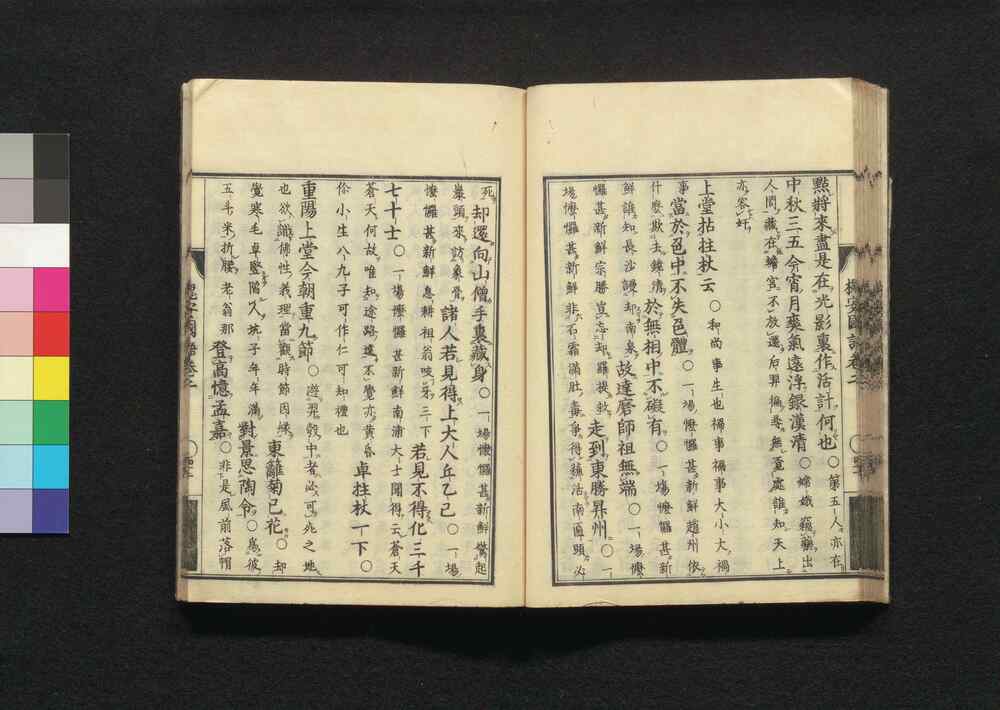 點將來盡是在光影裏作活計何也○第五人亦在
中秋三五今宵月爽氣遠浮銀漢清○嫦娥竊藥出
人間藏在蟾宮不放還后羿徧尋無覓處誰知天上
亦容奸
上堂拈拄杖云○和尚事生也禍事禍事大小大禍
事當於色中不失色體○一場懡㦬甚新鮮趙州依
什麼欺去鎌磚於無相中不礙有○一場懡㦬甚新
鮮誰知長沙謾却南泉故達磨師祖無端○一場懡
㦬甚新鮮宗勝豈忘却羅提救走到東勝昇州○一
場懡㦬甚新鮮非石霜滿肚毒爭得活南匾頭必
死却還向山僧手裏藏身○一場懡㦬甚新鮮驚起
巖頭來説象骨諸人若見得上大人丘乙己○一場
懡㦬甚新鮮息耕祖翁咬牙三下若見不得化三千
七十士○一場懡㦬甚新鮮南浦大士聞得云蒼天
蒼天何故唯知途路遠不覺亦黃昏卓拄杖一下○
你小生八九子可作仁可知禮也
重陽上堂今朝重九節○遊羿彀中者必可死之地
也欲識佛性義理當觀時節因緣東籬菊已花○却
覺寒毛卓豎階入坑子年年滿對景思陶令○為彼
五斗米折腰老翁那登高憶孟嘉○非是風前落帽
槐安國語卷之二